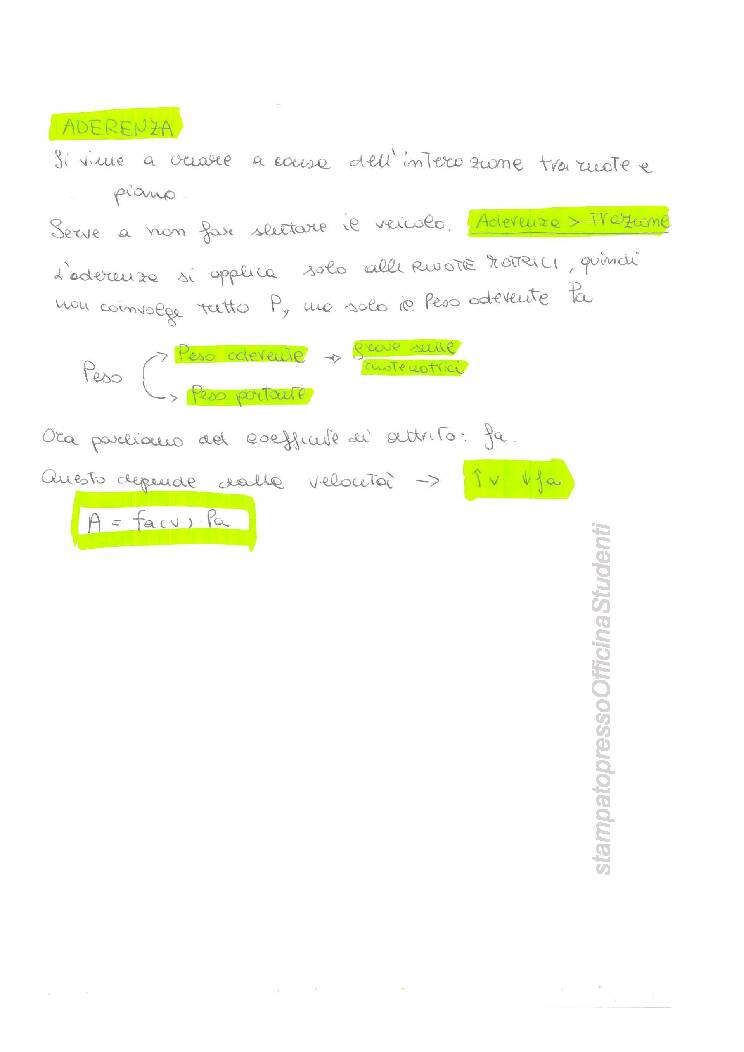 ADERENZA
Si viene a creare a causa dell'interazione tra ruote e
piano.
Serve a non far slittare il veicolo. Aderenza > Trazione
L'aderenza si applica solo alle RUOTE MOTRICI, quindi
non coinvolge tutto P, ma solo il Peso aderente Pa
Peso → Peso aderente → grave sulle
ruote motrici
→ Peso portante
Ora parliamo del coefficiente di attrito: fa.
Questo dipende dalla velocità → ↑v ↓fa
A = fa(v) · Pa
stampatopressoOfficinaStudenti